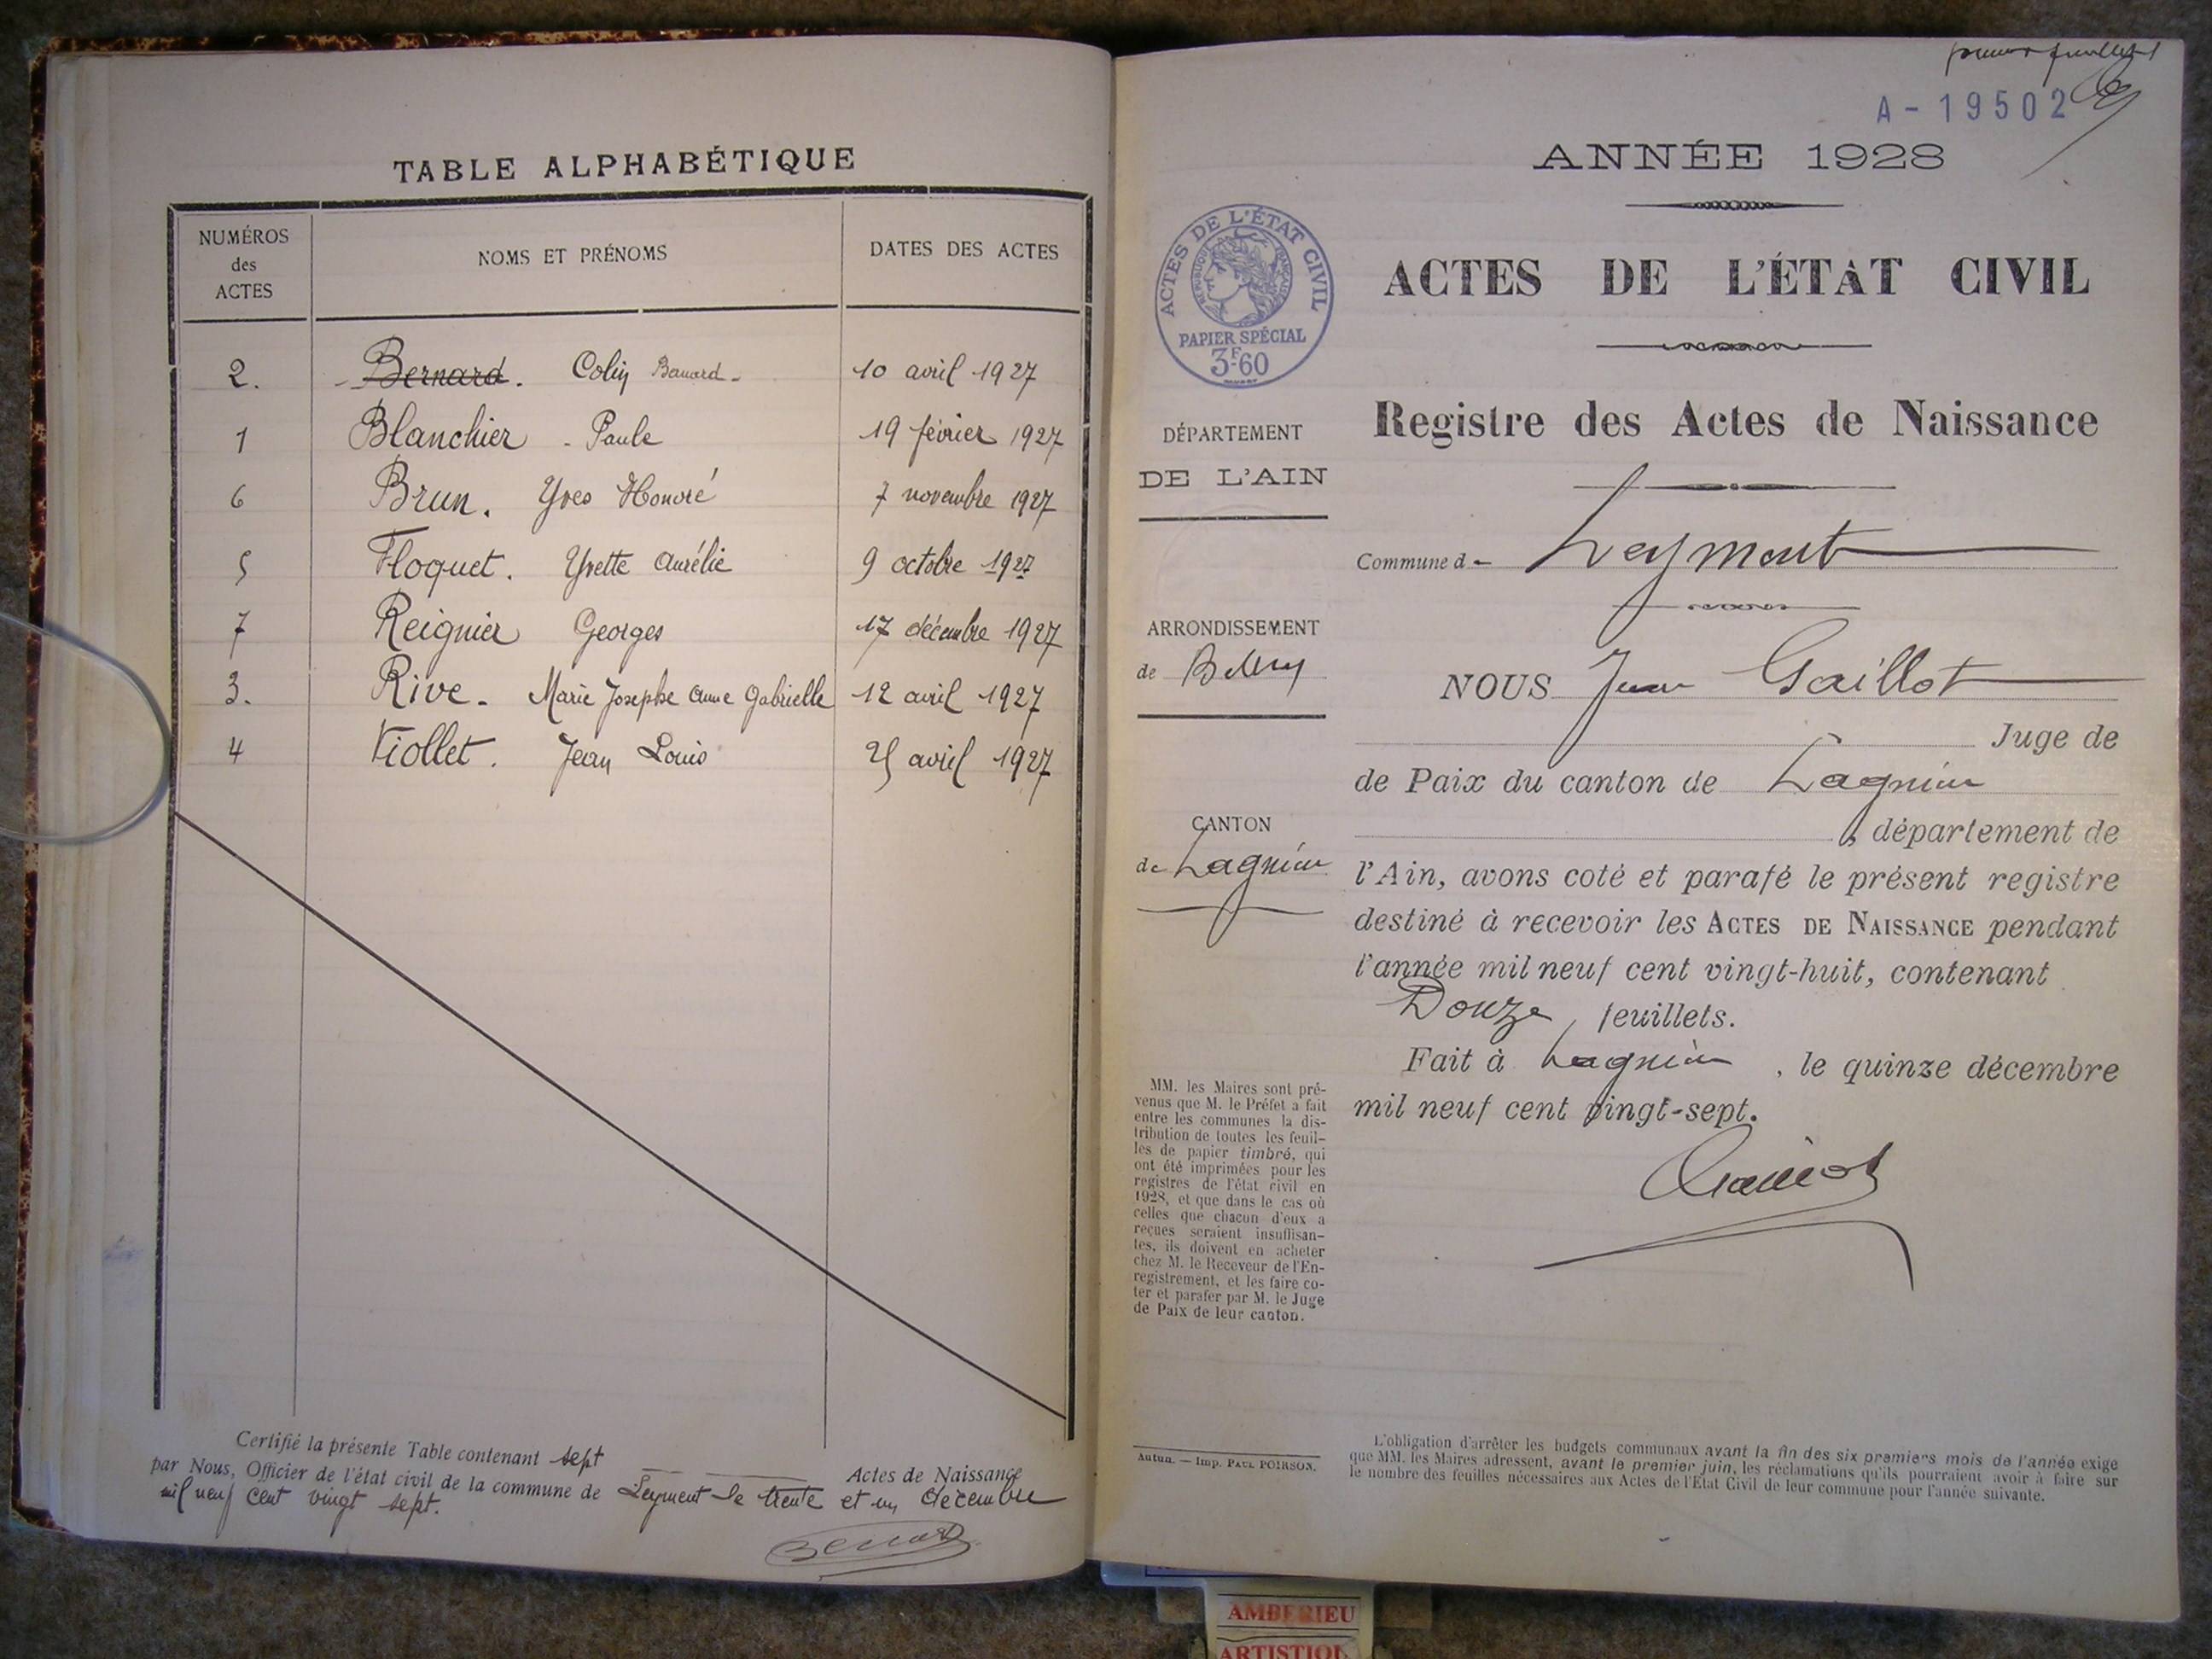 TABLE ALPHABÉTIQUE
NUMÉROS
des
ACTES
NOMS ET PRÉNOMS
DATES DES ACTES
2. Bernard. Colin 10 avril 1927
1 Blanchier - Paule 19 février 1927
6 Brun. Yves Honoré 7 novembre 1927
5 Floquet. Yvette Aurélie 9 octobre 1927
7 Reignier Georges 17 décembre 1927
3. Rive. Marie Josephe Anne Gabrielle 12 avril 1927
4 Viollet. Jean Louis 25 avril 1927
Certifié la présente Table contenant sept Actes de Naissance
par Nous, Officier de l'état civil de la commune de Leyment le trente et un décembre
mil neuf cent vingt sept.
premier feuillet
A - 19502
ANNÉE 1928
ACTES DE L'ÉTAT CIVIL
RÉPUBLIQUE FRANÇAISE
PAPIER SPÉCIAL
3F60
ACTES DE L'ÉTAT CIVIL
Registre des Actes de Naissance
DÉPARTEMENT
DE L'AIN
Commune d - Leyment
ARRONDISSEMENT
de Belley
NOUS Jean Gaillot
Juge de
de Paix du canton de Lagnieu
, département de
CANTON
de Lagnieu
l'Ain, avons coté et parafé le présent registre
destiné à recevoir les ACTES DE NAISSANCE pendant
l'année mil neuf cent vingt-huit, contenant
Douze feuillets.
Fait à Lagnieu, le quinze décembre
mil neuf cent vingt-sept.
MM. les Maires sont pré-
venus que M. le Préfet a fait
entre les communes la dis-
tribution de toutes les feuil-
les de papier timbré, qui
ont été imprimées pour les
registres de l'état civil en
1928, et que dans le cas où
celles que chacun d'eux a
reçues seraient insuffisan-
tes, ils doivent en acheter
chez M. le Receveur de l'En-
registrement, et les faire co-
ter et parafer par M. le Juge
de Paix de leur canton.
Autun. — Imp. PAUL POIRSON.
L'obligation d'arrêter les budgets communaux avant la fin des six premiers mois de l'année exige
que MM. les Maires adressent, avant le premier juin, les réclamations qu'ils pourraient avoir à faire sur
le nombre des feuilles nécessaires aux Actes de l'Etat Civil de leur commune pour l'année suivante.
AMBERIEU